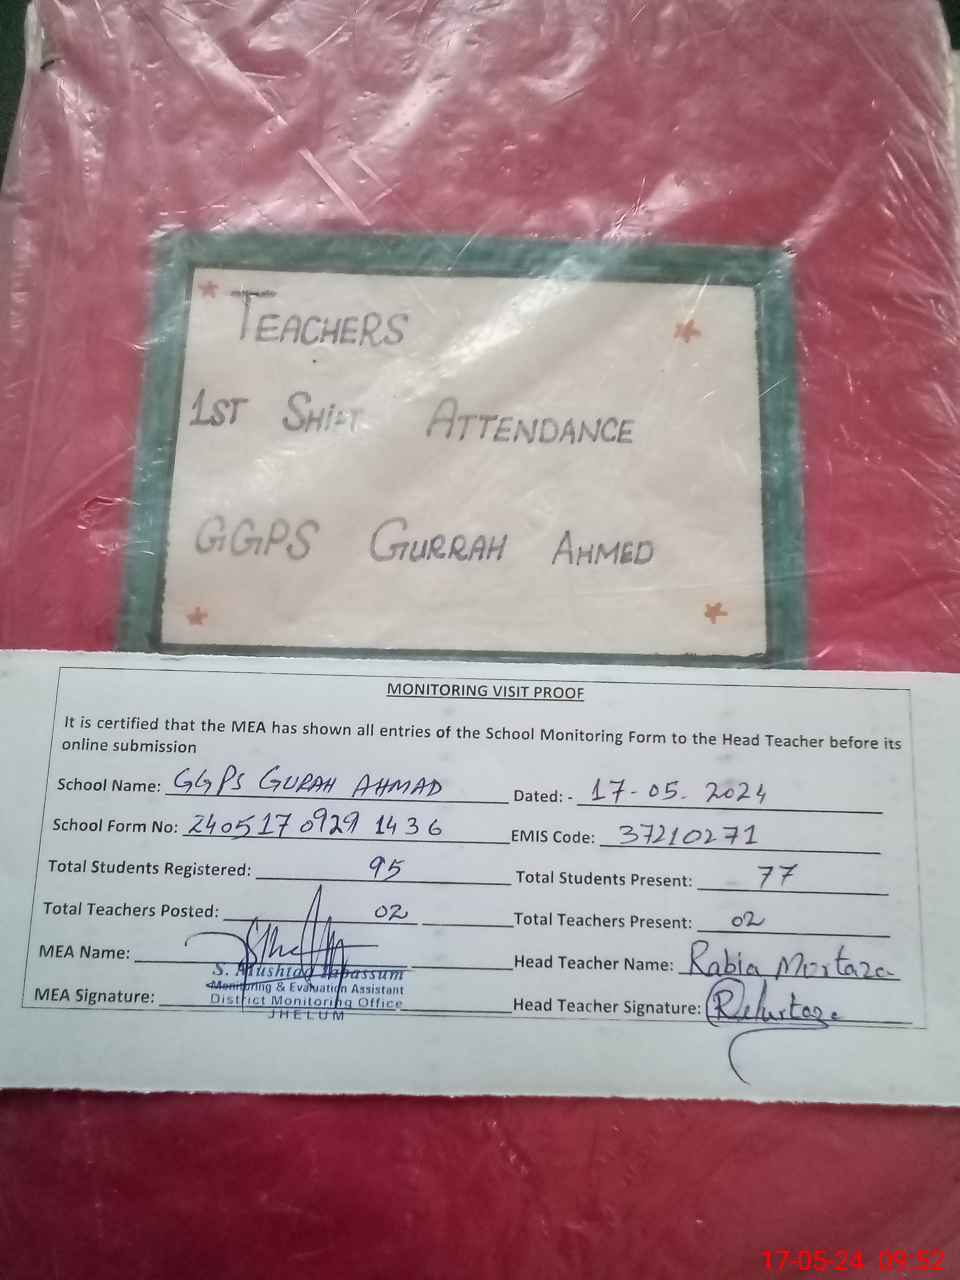 TEACHERS
1ST SHIFT ATTENDANCE
GGPS GURRAH AHMED
MONITORING VISIT PROOF
It is certified that the MEA has shown all entries of the School Monitoring Form to the Head Teacher before its
online submission
School Name: GGPS GURAH AHMAD Dated: - 17-05-2024
School Form No: 240517 0929 1436 EMIS Code: 37210271
Total Students Registered: 95 Total Students Present: 77
Total Teachers Posted: 02 Total Teachers Present: 02
MEA Name: Head Teacher Name: Rabia Mortaza
S. Mushtaq Tabassum
Monitoring & Evaluation Assistant
MEA Signature: District Monitoring Office Head Teacher Signature:
JHELUM
17-05-24 09:52